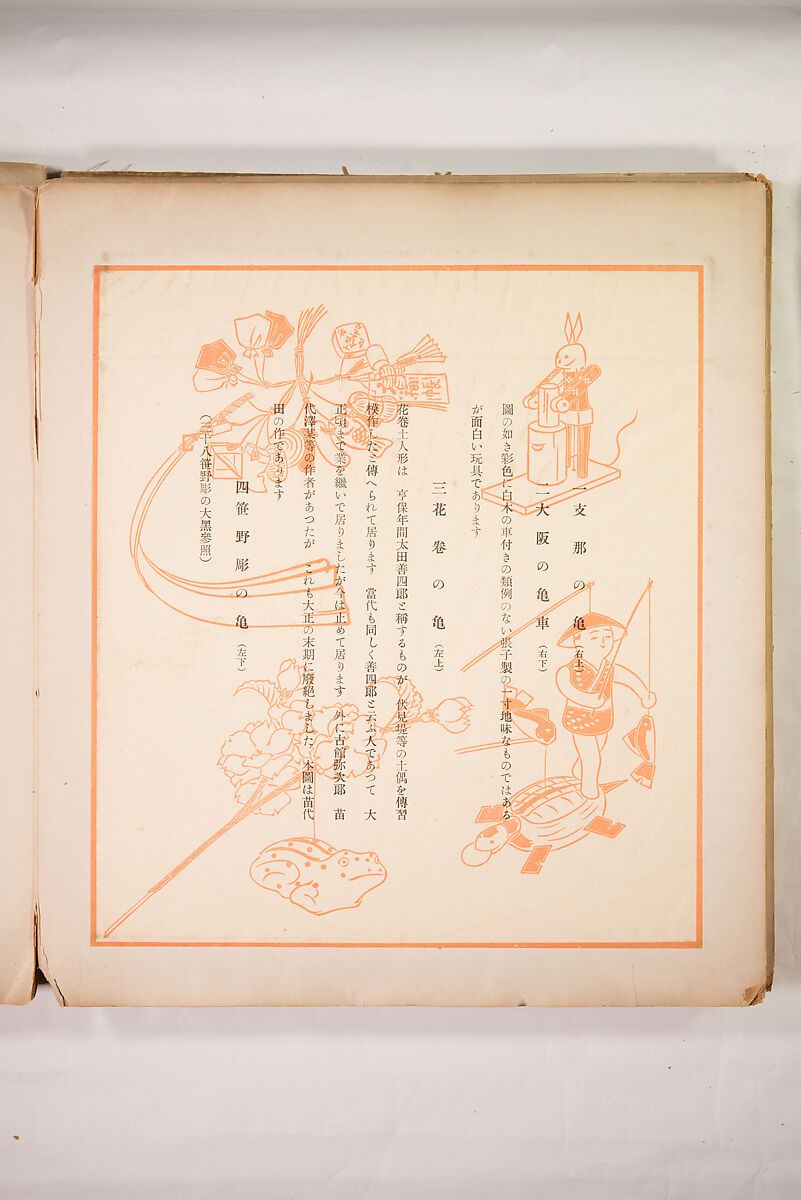 一 支那の亀（右上）
二 大阪の亀車（右下）
圖の如き彩色に白木の車付きの類例のない張子製の一寸地味なものではある
が面白い玩具であります
三 花巻の亀（左上）
花卷土人形は 享保年間太田善四郎と稱するものが 伏見堤等の土偶を傳習
模作したと傳へられて居ります 當代も同じく善四郎と云ふ人であつて 大
正頃まで業を繼いで居りましたが今は止めて居ります 外に古館弥次郎 苗
代澤某等の作者があつたが これも大正の末期に廢絶しました 本圖は苗代
田の作であります
四 笹野彫の亀（左下）
（三十八笹野彫の大黑參照）